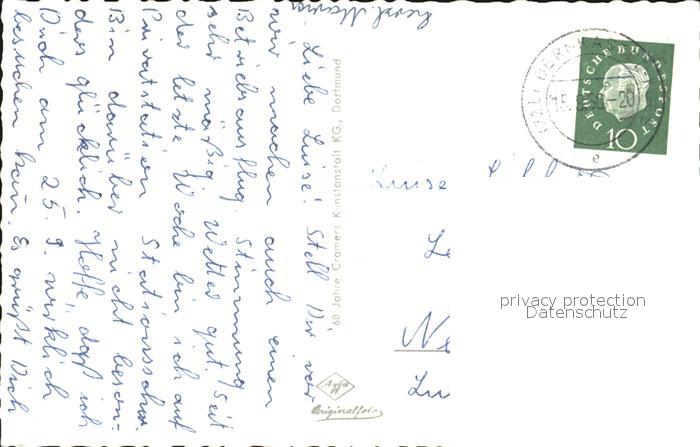 Liebe Luise! Stell Dir vor
wir machen auch einen
Betriebsausflug. Stimmung
sehr mäßig. Wetter gut. Seit
der letzte Woche bin ich auf
Privatstation Stationsschw.
Bin darüber nicht beson-
ders glücklich. Hoffe, daß ich
Dich am 25. 9. wirklich
besuchen kann. Es grüßt Dich
herzl.
60 Jahre Cramers Kunstanstalt KG., Dortmund
Agfa
Originalfoto
DEUTSCHE BUNDESPOST
10
e
Luise
privacy protection
Datenschutz